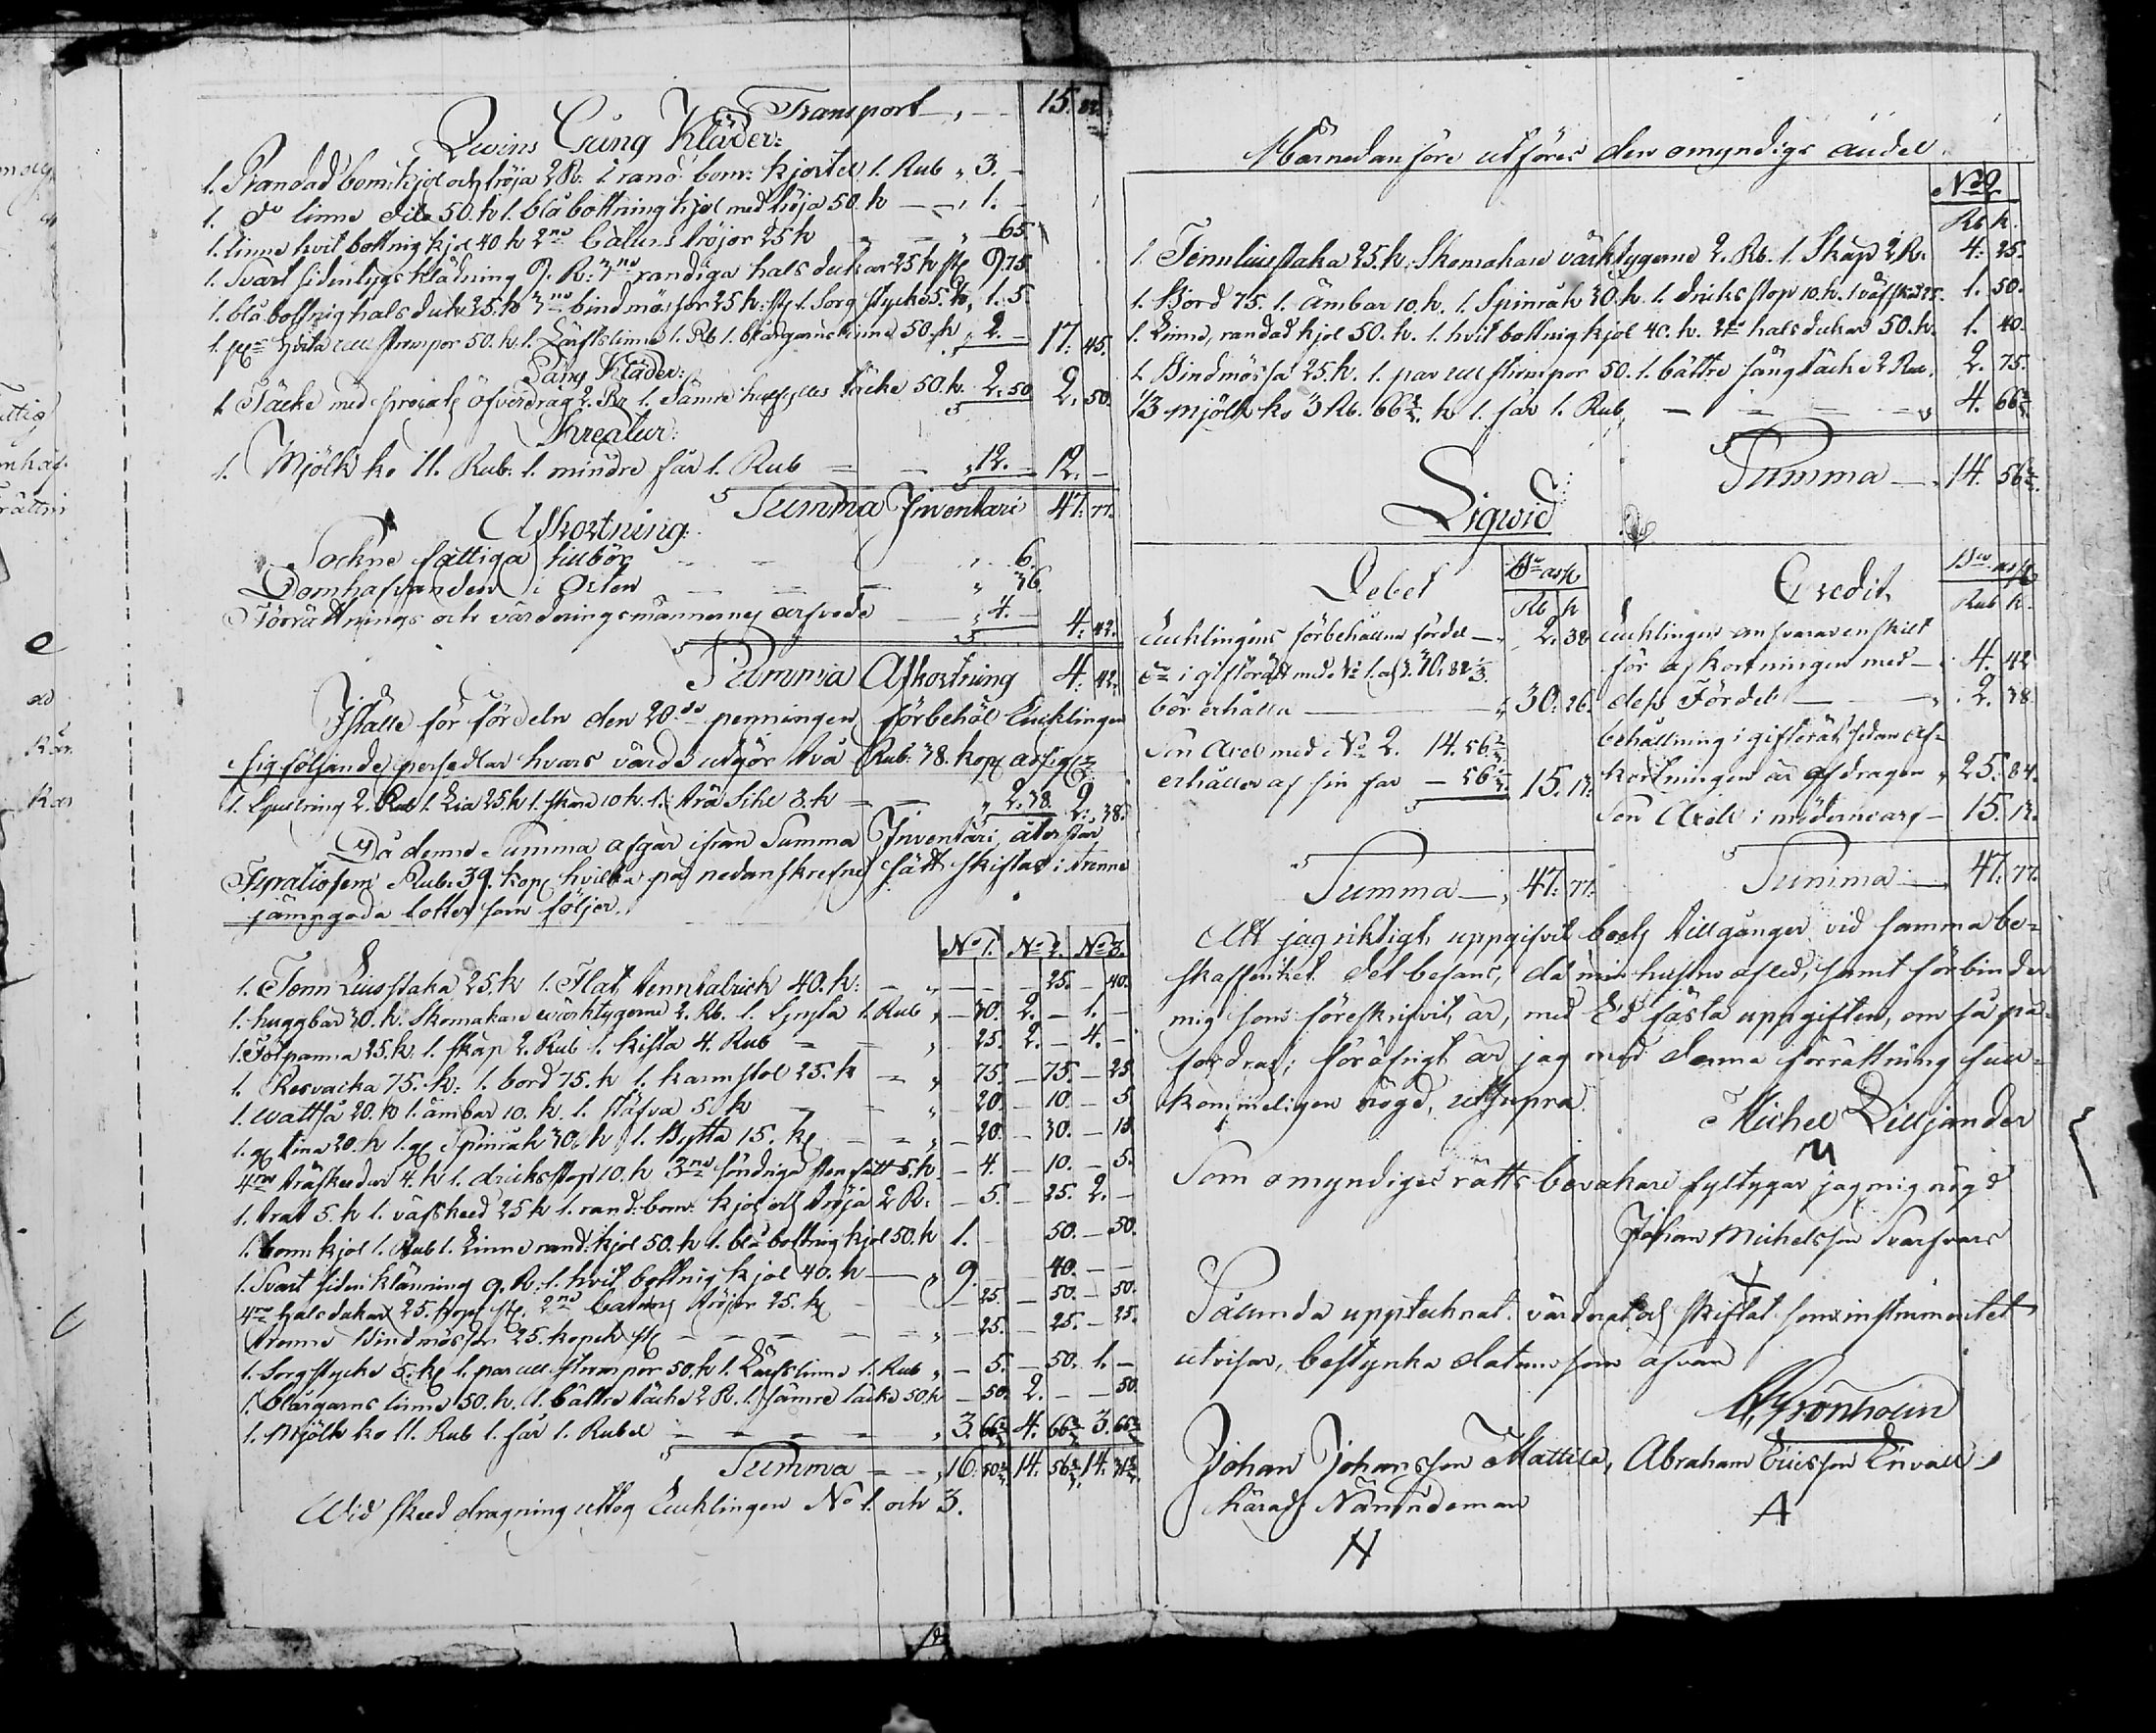 Transport 15. 82
Qwins Gång Kläder:
1. Randad bom: kjol och tröja 2 R: 1 rand: bom: kjortel 1. Rub „ 3. –
1. do linne dito 50. k 1. blå bottning kjol med tröja 50. k – „ 1. –
1. linne hvit bottnig kjol 40. k 2ne Catuns tröjor 25 k „ 65
1. Svart sidentygs klädning 9. R: 3ne randiga halsdukar 25 k st 9.75
1. blå bottnig halsduk 25. k 3ne bindmössor 25 k: st 1. Sorg stycke 5. k „ 1. 5.
1. par hvita ull strumpor 50. k 1. Lärftslinne 1. Rb 1. blårgarns linne 50. k „ 2. – 17. 45.
Säng Kläder:
1. Täcke med öfverdrag 2. Rb 1. Sämre täcke 50. k. 2. 50 2. 50.
Kreatur:
1. Mjölk ko 11. Rub: 1. mindre får 1. Rub „ 12. – 12. –
Summa Inventari 47. 77.
Afkortning:
Sockne fattiga tillbör „ 6.
Domhafvanden i Orten „ 36.
Förrättnings och värderingsmännernes arfvode „ 4. – 4. 42.
Summa Afkortning 4. 42.
Istället för fördeln den 20de penningen, förbehöl Enklingen
sig följande persedlar hvars värde utgör två Rub: 38. kop: assig:
1. Gullring 2. Rub 1. Lia 25. k 1. 10. k. 1. trä Sihl 3. k „ 2. 38. 2. 38.
Då denne Summa afgår ifrån Summa Inventari, återstår
Rub: 39. kop: hvilka på nedanskrefne sätt skiftas i trenne
jämngoda lotter som följer.
No 1. No 2. No 3.
1. Tenn Liusstaka 25. k 1. Flat tenntalrick 40. k: – – 25. – 40.
1. huggbar 30. k. Skomakare wärktygerne 2. Rb. 1. 1 Rub „ – 30. 2. – 1. –
1. Tolpanna 25. k. 1. skåp 2. Rub 1. kista 4. Rub „ 25. 2. – 4. –
1. Resvacka 75. k: 1. bord 75. k 1. karmstol 25. k „ 75. – 75. – 25
1. wattså 20. k 1. ämbar 10. k. 1. stäfva 5. k „ – 20. – 10. – 5.
1. tina 20. k 1. Spinråk 30. k 1. Bytta 15. k „ – 20. – 30. – 15
4ra träskedar 4. k 1. dricksstop 10. k 3ne söndriga stenfatt 5. k – 4. – 10. – 5.
1. trat 5. k 1. väfsked 25 k 1. rand: bom: kjol och tröja 2 R: – 5. – 25. 2. –
1. bom: kjol 1. Rub 1. Linne rand: kjol 50. k 1. blå bottnig kjol 50. k 1. – 50. – 50.
1. Svart siden klänning 9. R: 1. hvit bottnig kjol 40. k „ 9. – 40. – –
4ra halsdukar 25. kop: st. 2ne Catuns tröjor 25. k – 25. – 50. – 50.
trenne Bindmössor 25. kopek st „ – 25. – 25. – 25.
1. Sorgstycke 5. k 1. par ull strumpor 50. k 1. Lärftslinne 1. Rub „ – 5. – 50. 1. –
1. blårgarns linne 50. k. 1. bättre täcke 2 R. 1. sämre täcke 50. k – 50. 2. – – 50.
1. Mjölk ko 11. Rub 1. får 1. Rubel „ 3. 66 2/3 4. 66 2/3 3. 66 2/3
Summa „ 16. 50 2/3 14. 56 2/3 14.
Wid skedd dragning uttog Enklingen No 1. och 3.
Härnedanföre utföres den omyndigs andel
No 2
Rb k.
1. Tennliusstaka 25. k. Skomakare värktygerne 2. Rb. 1. Skåp 2 R. 4. 25.
1. Bord 75. 1. Ämbar 10. k. 1. Spinråk 30. k. 1. dricksstop 10. k. 1 väfsked 25. 1. 50.
1. Linne, randad kjol 50. k. 1. hvit bottnig kjol 40. k. 2ne halsdukar 50. k. 1. 40.
1. Bindmössa 25. k. 1. par ull strumpor 50. 1. bättre sängtäcke 2 Rub. 2. 75.
1/3 mjölk ko 3 Rb. 66 2/3 k 1. får 1. Rub. 4. 66 2/3
Summa 14. 56 2/3
Liqwid
Debet
Rb k
Enklingens förbehållne fördel – 2. 38
i giftorätt med No 1. och 3.
bör erhålla „ 30. 26.
Son Axel med No 2. 14. 56 2/3
erhåller af sin far – 56 15. 13.
Summa 47. 77.
Credit
Rub k.
Enklingen ansvarar enskilt
för afkortningen med 4. 42
dess Fördel 2. 38
behållning i giftorätt sedan af-
kortningen är afdragen „ 25. 84.
Son Axels i mödernearf – 15. 13.
Summa 47. 77.
Att jag riktigt uppgifvit boets tillgångar vid samma be-
skaffenhet det befans, då min hustru afled, samt förbinder
mig som föreskrifvit är, med Ed fästa uppgiften, om så på-
fordras; föröfrigt är jag med denna förrättning full-
kommeligen nögd, ut supra.
Michel Lilljander
Som omyndiges rätts bevakare jag mig nögd
Johan Michelsson Svarfvars
Sålunda upptecknat. värderat och skiftat som instrumentet
utvisar, bestyrka datum som ofvan
Grönholm
Johan Johansson Mattila, Abraham Ericsson Envall
Härads Nämndeman A
N